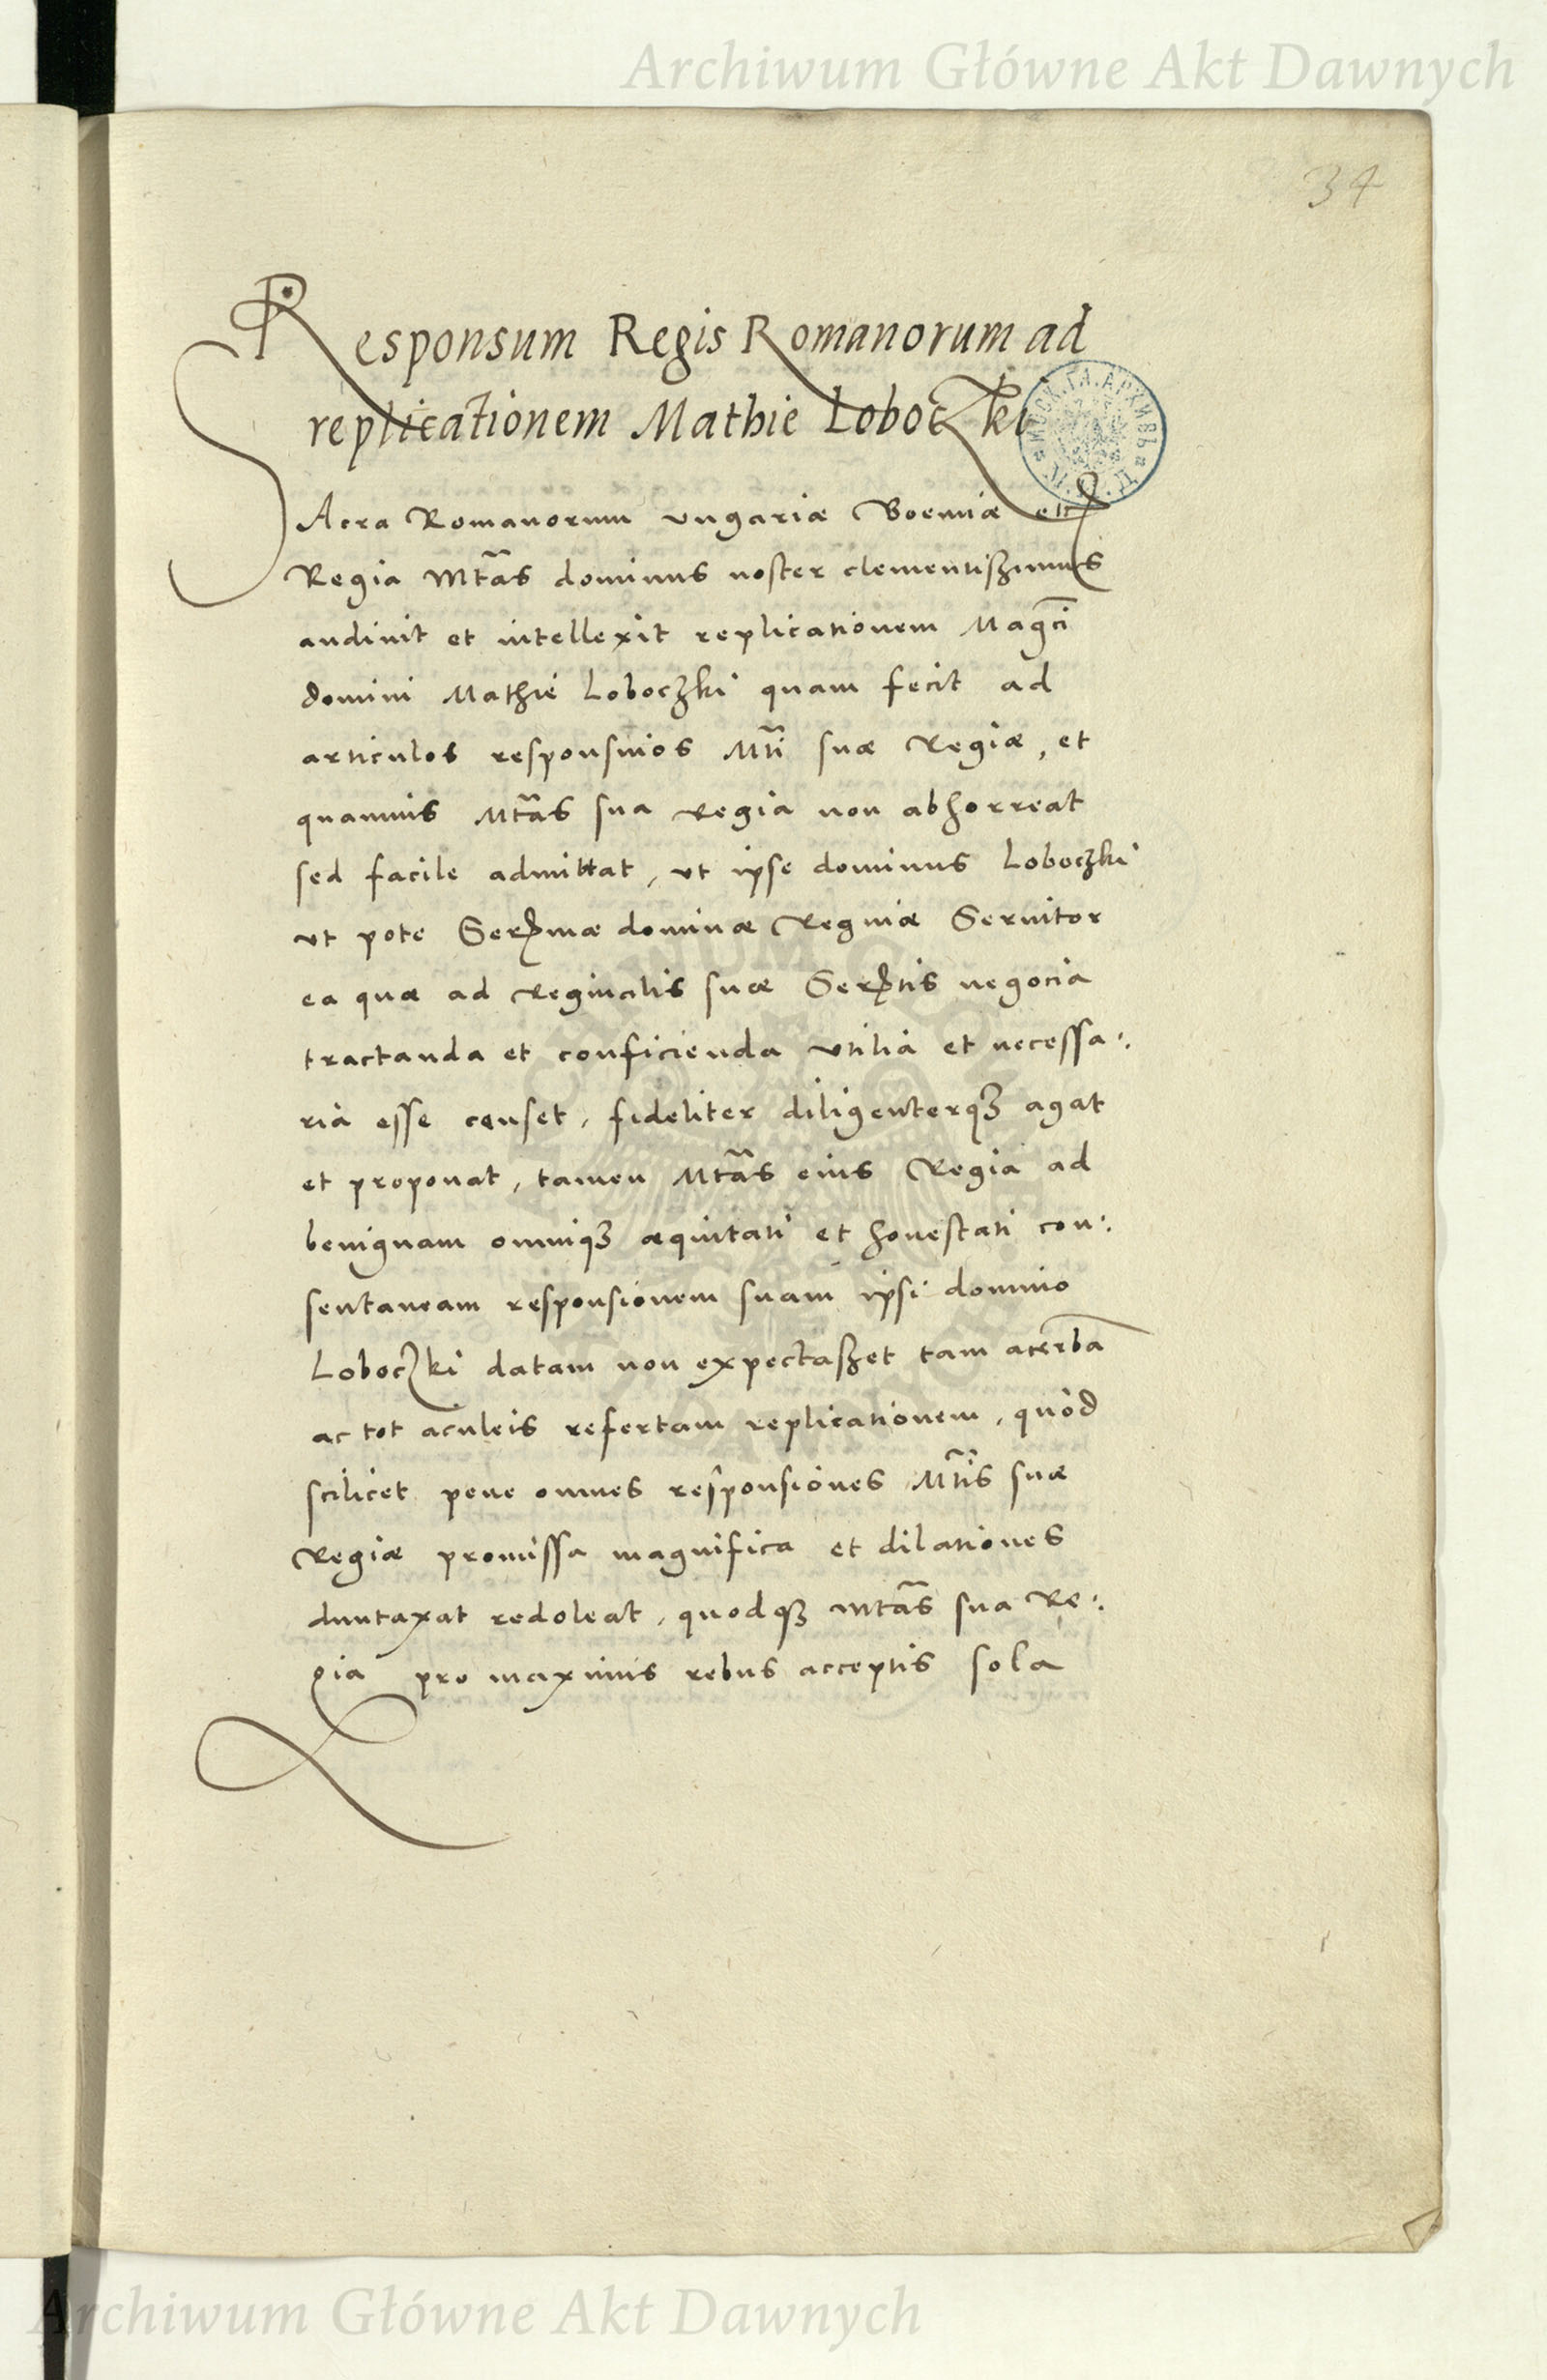 Archiwum Główne Akt Dawnych
34
Responsum Regis Romanorum ad
replicationem Mathie Loboczki
SAcra Romanorum Vngariæ Boemiæ etc
Regia Mtas dominus noster clementiszimus
audiuit et intellexit replicationem Magci
domini Mathie Loboczki quam fecit ad
articulos responsiuos Mti suæ Regiæ, et
quamuis Mtas sua Regia non abhorreat
sed facile admittat, vt ipse dominus Loboczki
vt pote Sermæ dominæ Reginæ Seruitor
ea quæ ad Reginalis suæ Sertis negocia
tractanda et conficienda vtilia et necessa:
ria esse censet, fideliter diligenterqȝ agat
et proponat, tamen Mtas eius Regia ad
benignam omniqȝ æquitati et honestati con:
sentaneam responsionem suam ipsi domino
Loboczki datam non expectaszet tam acerbā
ac tot aculeis refertam replicationem, quòd
scilicet pene omnes responsiones Mtis suæ
Regiæ promissa magnifica et dilationes
duntaxat redoleat, quodqȝ Mtas sua Re:
gia pro maximis rebus acceptis sola
Archiwum Główne Akt Dawnych